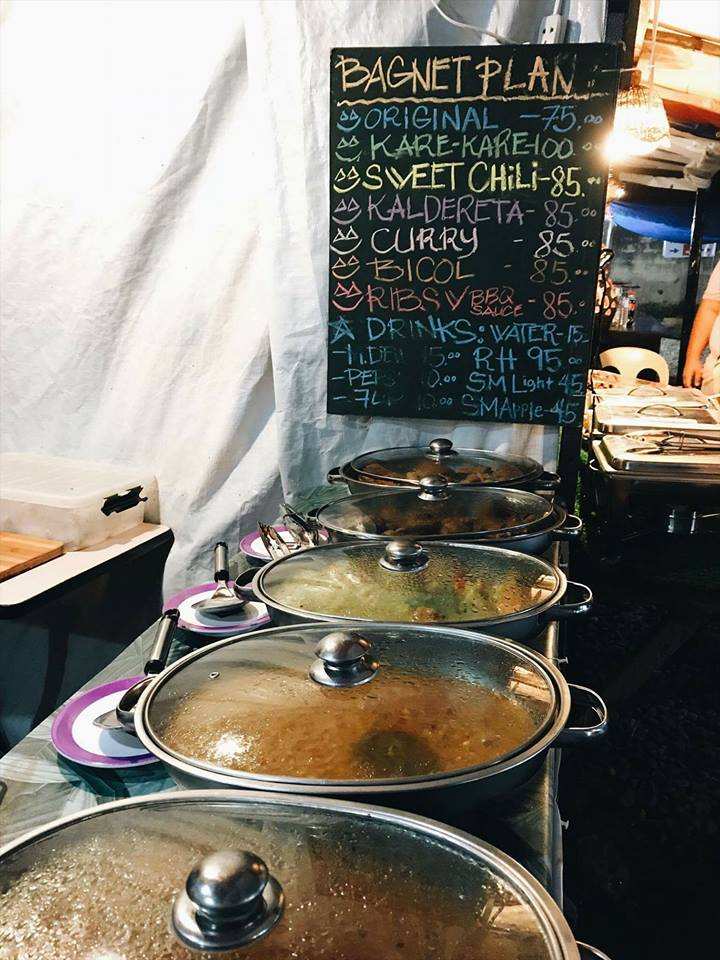 BAGNET PLAN
ORIGINAL - 75.00
KARE-KARE-100.00
SWEET CHiLi-85.00
KALDERETA-85.00
CURRY - 85.00
BICOL - 85.00
RIBS V BBQ SAUCE - 85.00
DRINKS: WATER-15
RH 95.00
SM Light 45
SM Apple-45